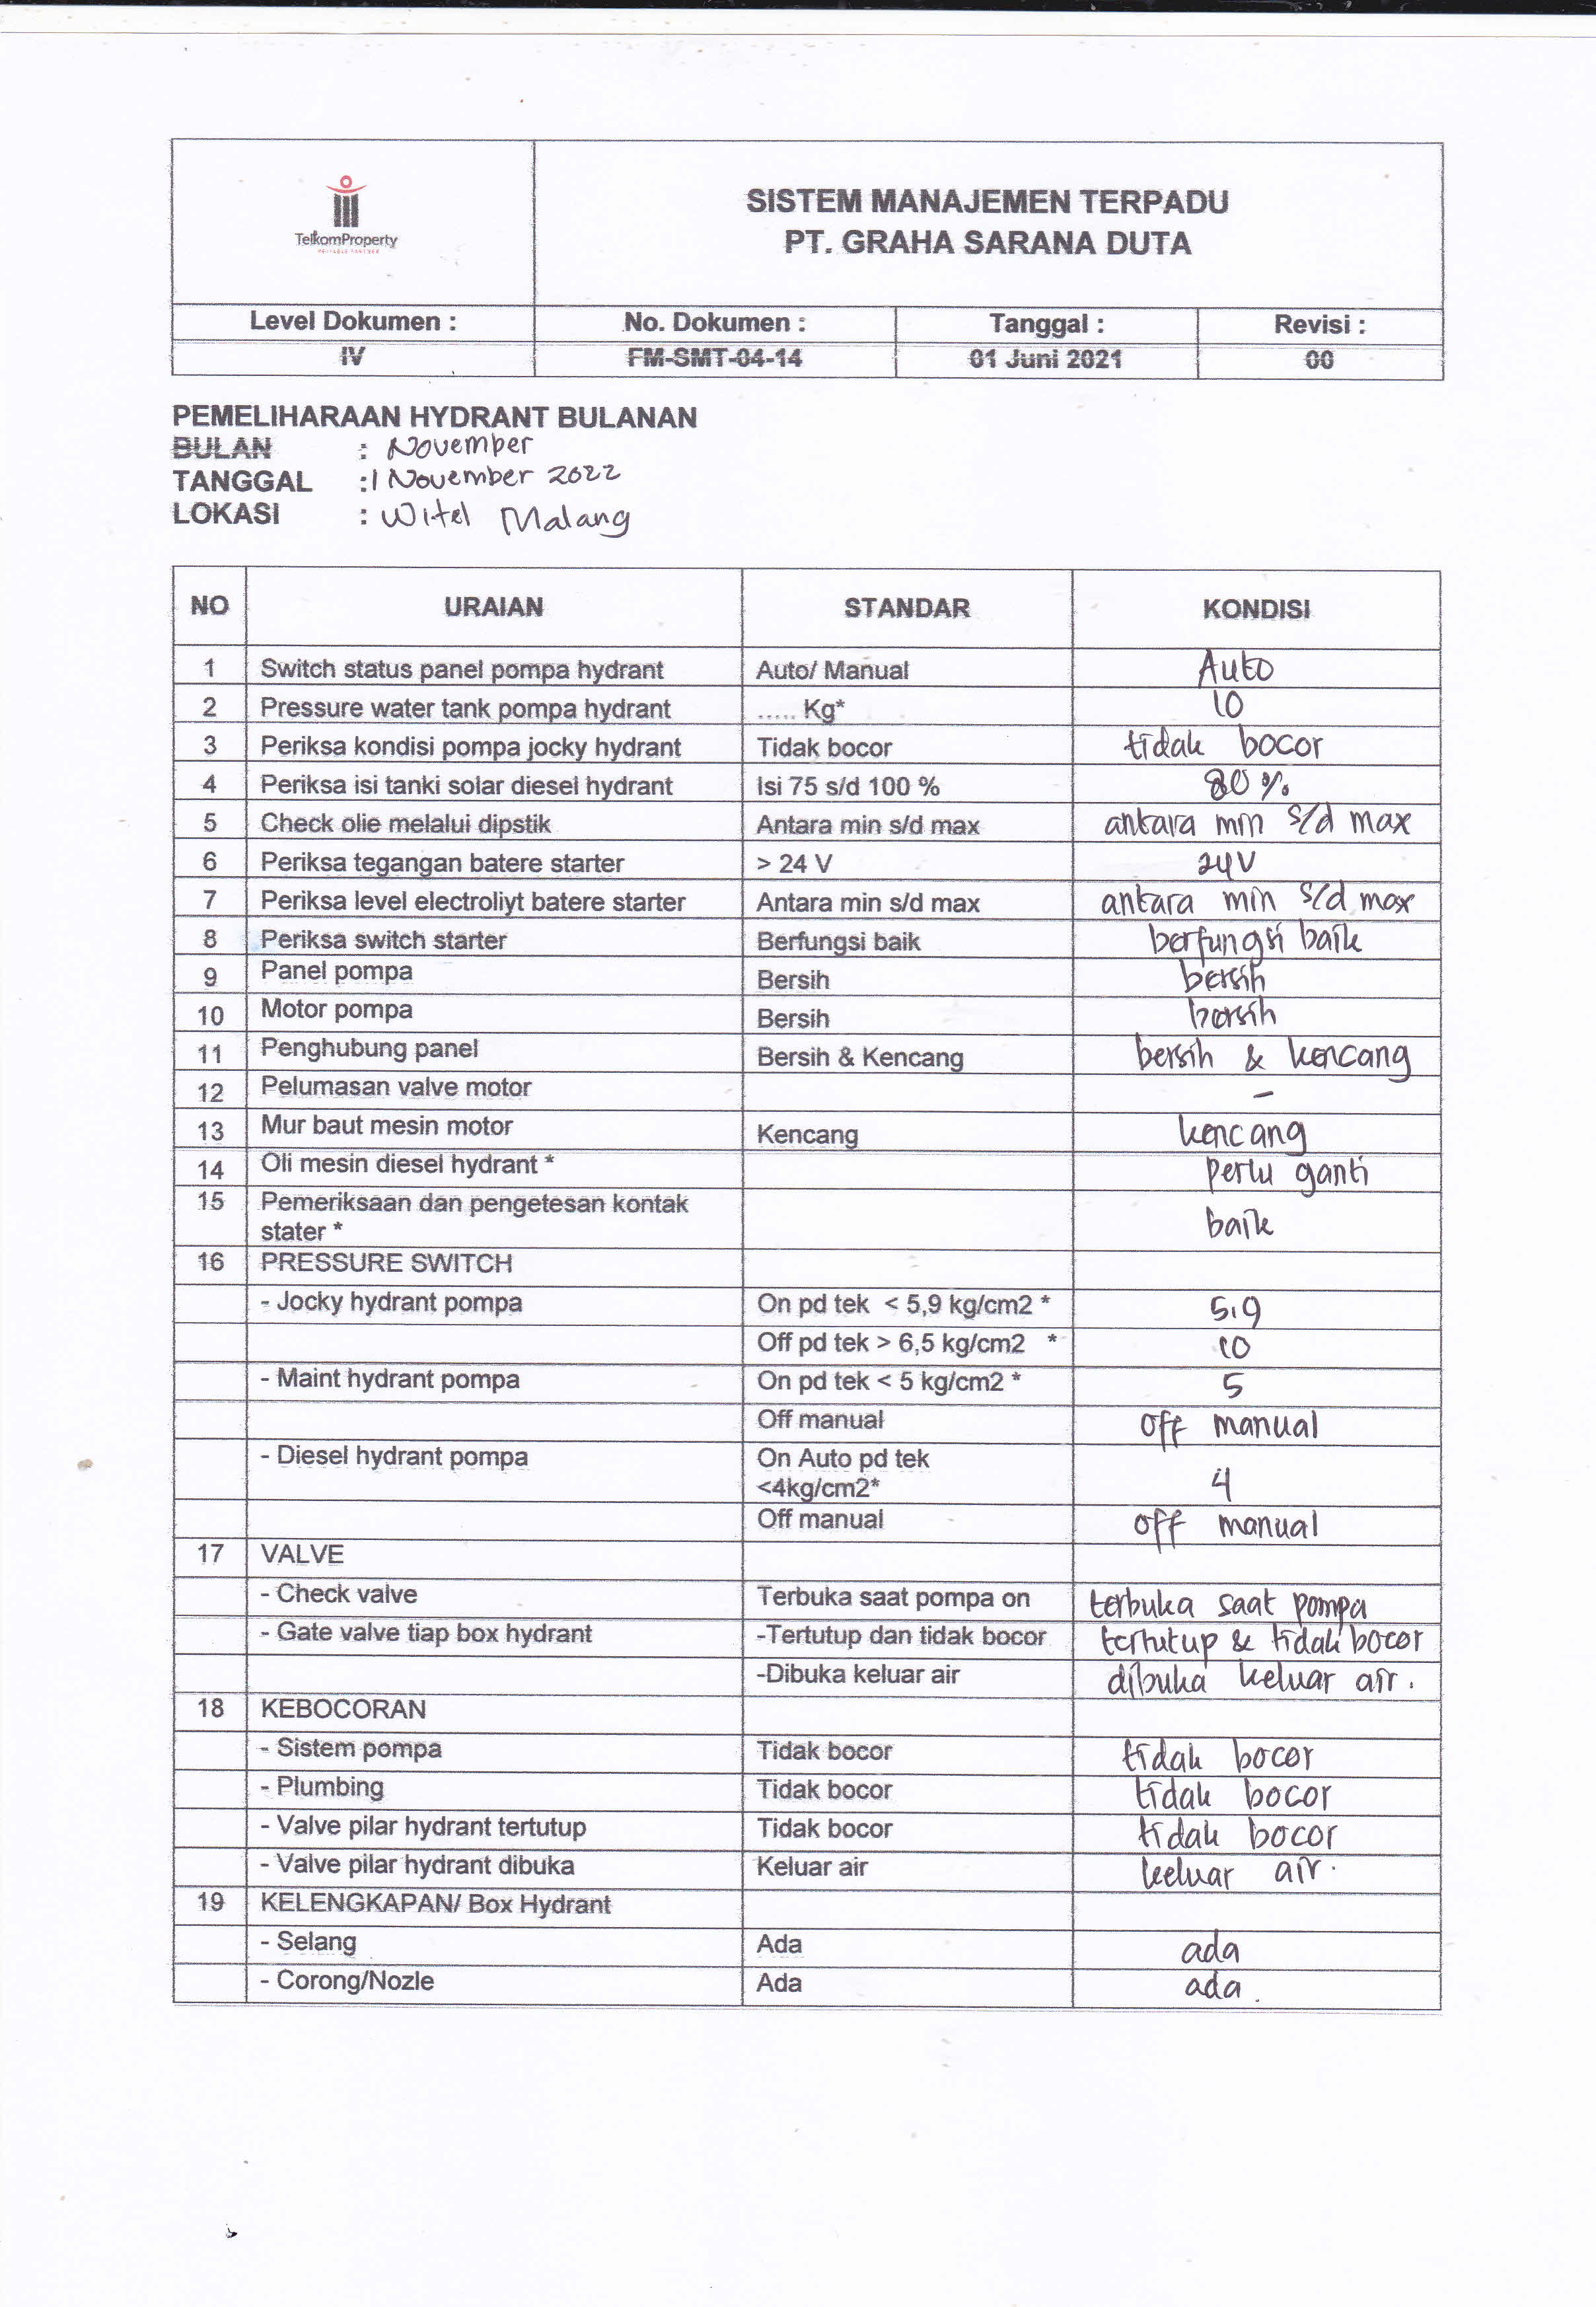 TelkomProperty
SISTEM MANAJEMEN TERPADU
PT. GRAHA SARANA DUTA
Level Dokumen : No. Dokumen : Tanggal : Revisi :
IV FM-SMT-04-14 01 Juni 2021 00
PEMELIHARAAN HYDRANT BULANAN
BULAN : November
TANGGAL : 1 November 2022
LOKASI : Witel Malang
NO URAIAN STANDAR KONDISI
1 Switch status panel pompa hydrant Auto/ Manual Auto
2 Pressure water tank pompa hydrant ..... Kg* 10
3 Periksa kondisi pompa jocky hydrant Tidak bocor tidak bocor
4 Periksa isi tanki solar diesel hydrant Isi 75 s/d 100 % 80 %
5 Check olie melalui dipstik Antara min s/d max antara min s/d max
6 Periksa tegangan batere starter > 24 V 24V
7 Periksa level electroliyt batere starter Antara min s/d max antara min s/d max
8 Periksa switch starter Berfungsi baik berfungsi baik
9 Panel pompa Bersih bersih
10 Motor pompa Bersih bersih
11 Penghubung panel Bersih & Kencang bersih & kencang
12 Pelumasan valve motor -
13 Mur baut mesin motor Kencang kencang
14 Oli mesin diesel hydrant * perlu ganti
15 Pemeriksaan dan pengetesan kontak
stater * baik
16 PRESSURE SWITCH
- Jocky hydrant pompa On pd tek < 5,9 kg/cm2 * 5,9
Off pd tek > 6,5 kg/cm2 * 10
- Maint hydrant pompa On pd tek < 5 kg/cm2 * 5
Off manual off manual
- Diesel hydrant pompa On Auto pd tek
<4kg/cm2* 4
Off manual off manual
17 VALVE
- Check valve Terbuka saat pompa on terbuka saat pompa
- Gate valve tiap box hydrant -Tertutup dan tidak bocor tertutup & tidak bocor
-Dibuka keluar air dibuka keluar air.
18 KEBOCORAN
- Sistem pompa Tidak bocor tidak bocor
- Plumbing Tidak bocor tidak bocor
- Valve pilar hydrant tertutup Tidak bocor tidak bocor
- Valve pilar hydrant dibuka Keluar air keluar air.
19 KELENGKAPAN/ Box Hydrant
- Selang Ada ada
- Corong/Nozle Ada ada.